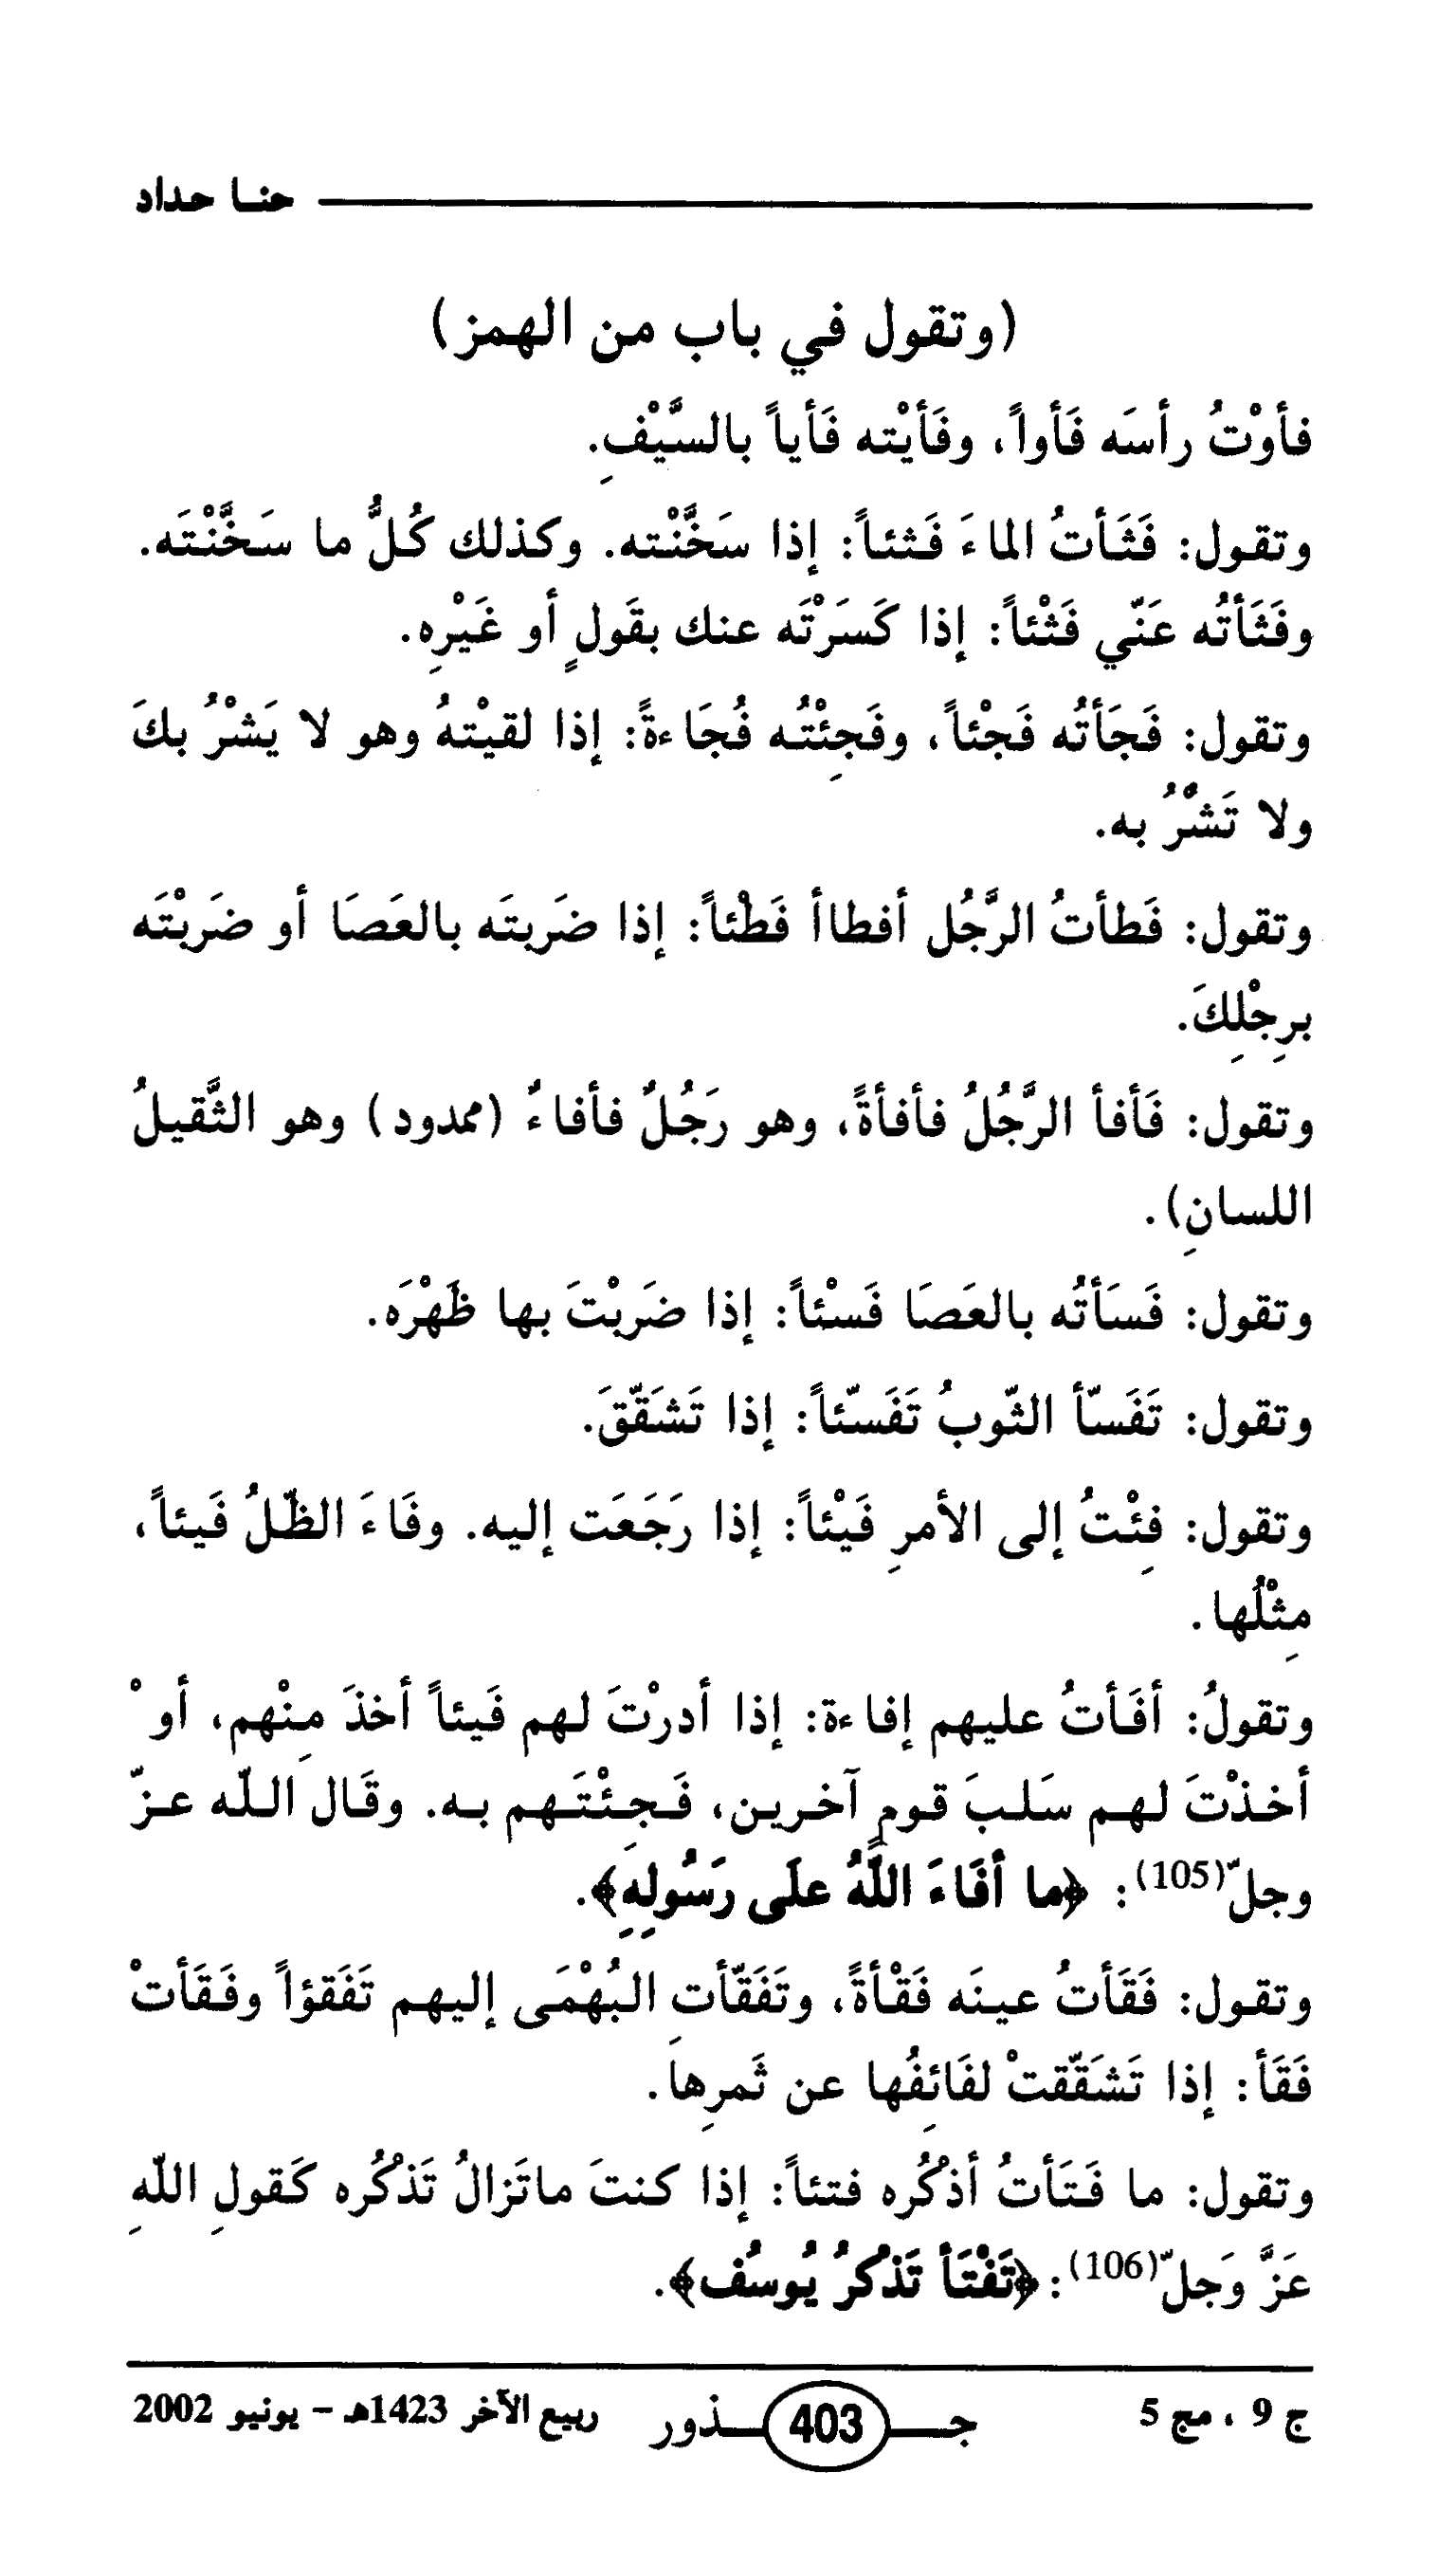 حنا حداد
(وتقول في باب من الهمز)
فأوْتُ رأسَه فَأواً، وفَأيْته فَأياً بالسَّيْفِ.
وتقول: فَثَأتُ الماءَ فَثئاً: إذا سَخَّنْته. وكذلك كُلُّ ما سَخَّنْتَه.
وفَثَأتُه عَنّي فَثْئاً: إذا كَسَرْتَه عنك بقَولٍ أو غَيْرِه.
وتقول: فَجَأتُه فَجْئاً، وفَجِئْتُه فُجَاءةً: إذا لقيْتهُ وهو لا يَشْرُ بكَ
ولا تَشْرُ به.
وتقول: فَطأتُ الرَّجُل أفطاأ فَطْئاً: إذا ضَربتَه بالعَصَا أو ضَربْتَه
برِجْلِكَ.
وتقول: فَأفأ الرَّجُلُ فأفأةً، وهو رَجُلٌ فأفاءٌ (ممدود) وهو الثَّقيلُ
اللسانِ).
وتقول: فَسَأتُه بالعَصَا فَسْئاً: إذا ضَربْتَ بها ظَهْرَه.
وتقول: تَفَسّأ الثّوبُ تَفَسّئاً: إذا تَشَقّقَ.
وتقول: فِئْتُ إلى الأمرِ فَيْئاً: إذا رَجَعَت إليه. وفَاءَ الظّلُ فَيئاً،
مِثْلُها.
وتقولُ: أفَأتُ عليهم إفاءة: إذا أدرْتَ لهم فَيئاً أخذَ مِنْهم، أوْ
أخذْتَ لهم سَلبَ قومٍ آخرين، فَجِئْتَهم به. وقَال اللّه عزّ
وجلّ(105): ﴿ما أفَاءَ اللَّهُ علَى رَسُولِهِ﴾.
وتقول: فَقَأتُ عينَه فَقْأةً، وتَفَقّأتِ البُهْمَى إليهم تَفَقؤاً وفَقَأتْ
فَقَأ: إذا تَشَقّقتْ لفَائِفُها عن ثَمرِهاَ.
وتقول: ما فَتَأتُ أذْكُره فتئاً: إذا كنتَ ماتَزالُ تَذكُره كَقولِ اللّهِ
عَزَّ وَجلّ(106): ﴿تَفْتَأ تَذكرُ يُوسُف﴾.
ج 9 ، مج 5 جـــذور 403 ربيع الآخر 1423هـ - يونيو 2002